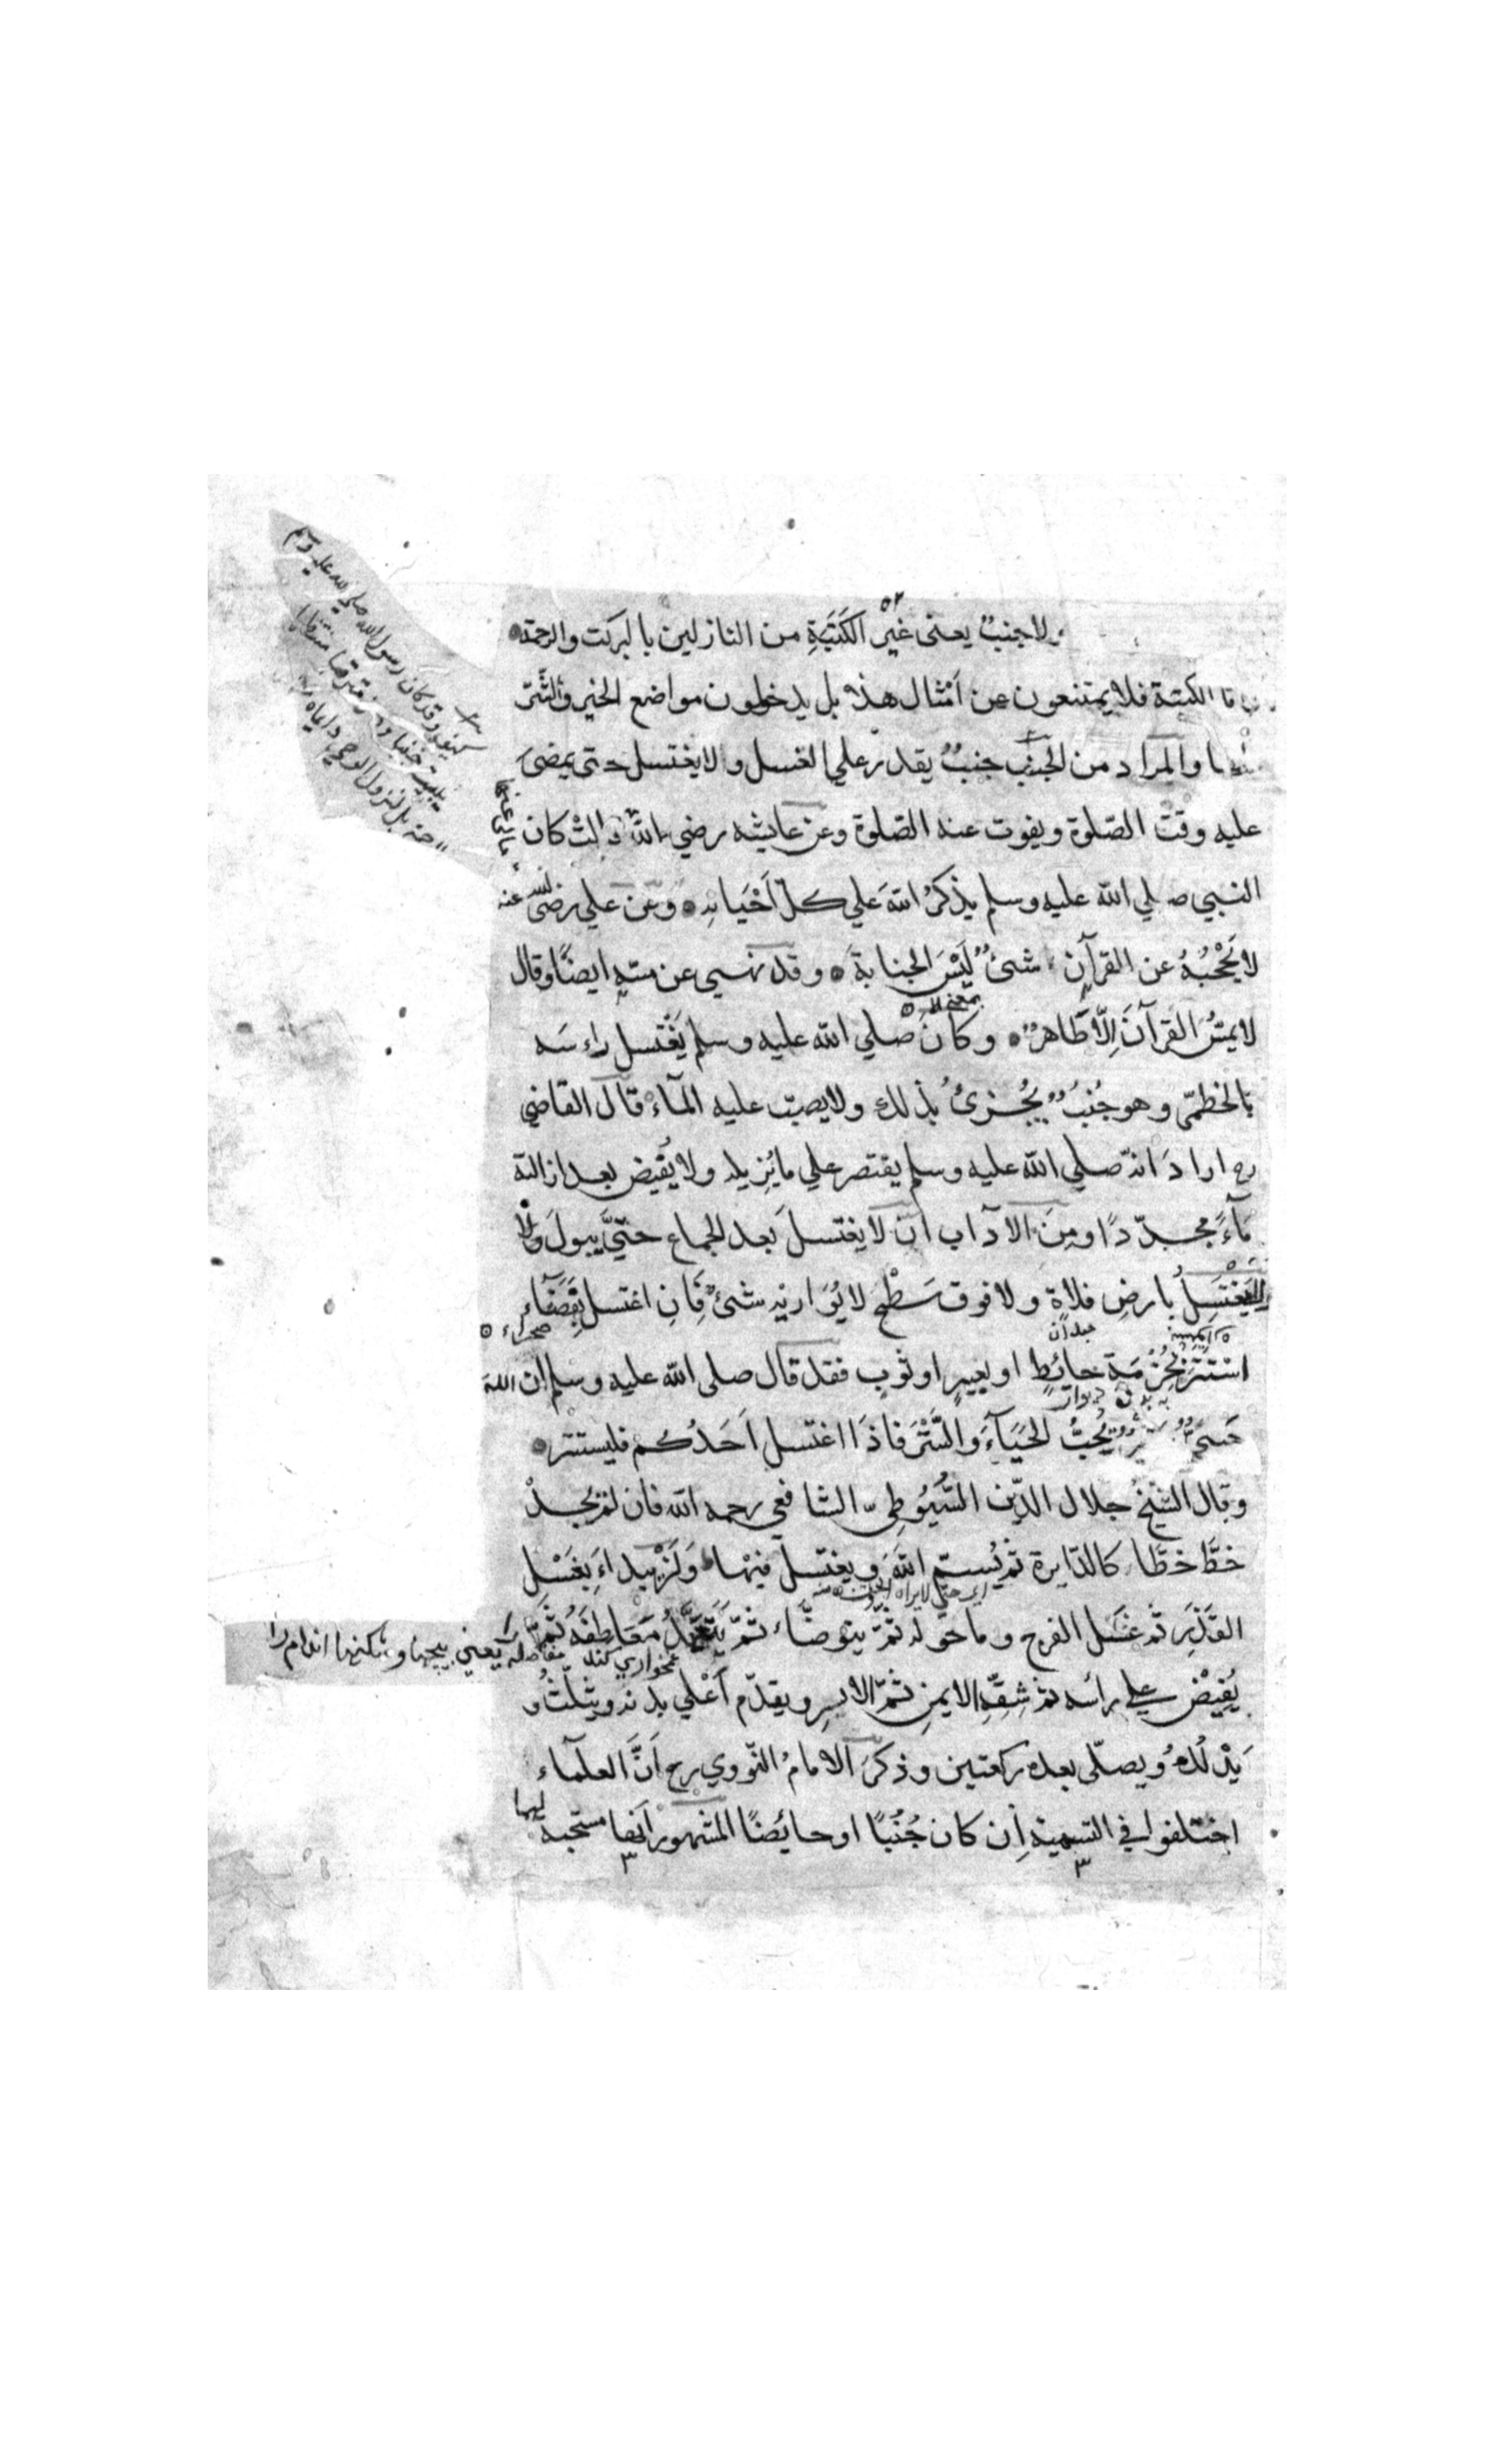 ولا جنبٌ يعنى غيرُ الكَتَبَةِ من النازلين بالبركت والرحمة
الكتبة فلا يمتنعون عن اَمْثال هذا بل يدخلون مواضع الخير والشّرّ
والمراد من الجُنُبِ جنبٌ يقدر علي الغسل ولا يغتسل حتى يمضىَ
عليه وقتُ الصّلوة ويفوت عنه الصّلوة وعن عايشه رضي الله قالتْ كان
تعالى عنها
النبيي صلي الله عليه وسلم يذكرُ اللهَ علي كلّ اَحْيَانِه وعَن علي رضىَ الله عنه
لا يَحْجُبُهُ عن القرآنِ شئٌ لَيْسَ الجنابةَ وقد نهىٰ عن مسّهِ ايضًا وقال
بمعنى الا
لا يمسُّ القرآنَ اِلّا طَاهرٌ وكانَ صلي الله عليه وسلم يَغْتسل راءسَه
بالخطمىّ وهو جُنُبٌ يُجْزئُ بذلك ولا يصبّ عليه المآءَ قال القاضى
رح ارادَ انّه صلي الله عليه وسلم يقتصر علي ما يُزيله ولا يُفِيض بعد ازالته
مآءً مجدّدًا ومِنَ الآداب ان لا يغتسلَ بعد الجماع حتّي يبولَ ولا
يَغْتَسِلُ بارضِ فلاةٍ ولا فوق سَطْحٍ لا يُوَاريْه شئٌ فَاِنِ اغتسل بِفَضَآءٍ
صحراء
استَتَرَ بِحُزْمَةِ حائطٍ او بعيرٍ او ثوبٍ فقد قال صلى الله عليه وسلم ان اللهَ
ديوار
حَيىٌّ يُحِبُّ الحَيَآءَ والسَّتْرَ فاذا اغتسل اَحَدُكم فليستتر
وقال الشيخُ جلال الدّين السّيُوْطِىّ الشافعي رحمه الله فان لم يجدْ
خطَّ خطًّا كالدّايرة ثم يُسمّى اللهَ ويغتسل فيْها وَلْيَبْداءَ بِغَسْلِ
اى حتى لا يراه الجن منه
القَذَرِ ثم غَسَل الفرج وما حوله ثمّ يتوضّاءُ ثمّ يَتَعَهَّدُ مَعَاطِفَهُ ثُمَّ
غمخواري كند مفاصله يعني پيچها و شكنها اندام را
يُفِيْضُ على رائسه ثم شِقِّهِ الايمنِ ثمّ الايسرِ ويقدّم اَعْلي بدنه ويثلّثُ و
يَدْلُكُ ويصلّى بعده ركعتين وذكرَ الامامُ النّووي رح اَنَّ العلمآء
اختلفوا في التسمية اِن كان جُنُبًا او حائضًا المشهور اَنّها مستحبة لهما
وقد كان رسول الله صلى الله عليه وسلم